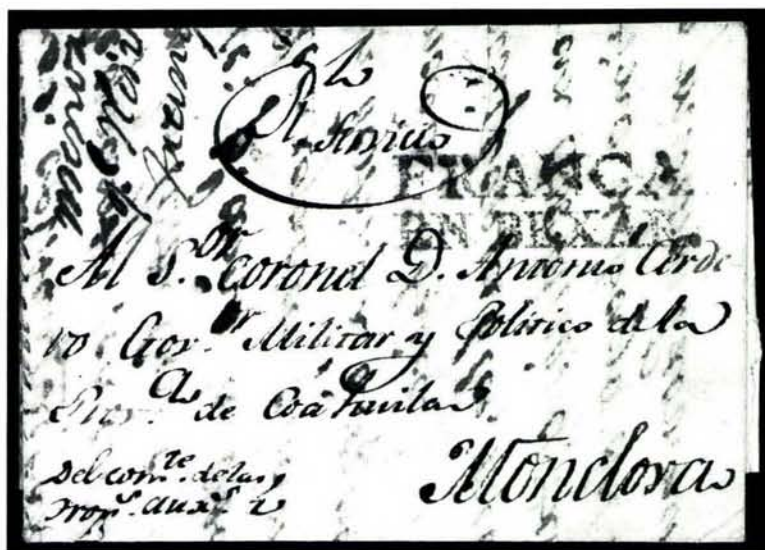 Rl. Servicio
FRANCA
EN BEXAR
Al S.or Coronel D. Antonio Corde
ro Gov.or Militar y Politico de la
Prov.a de Coahuila
Monclova
Del com.te de las
trop.s aux.s